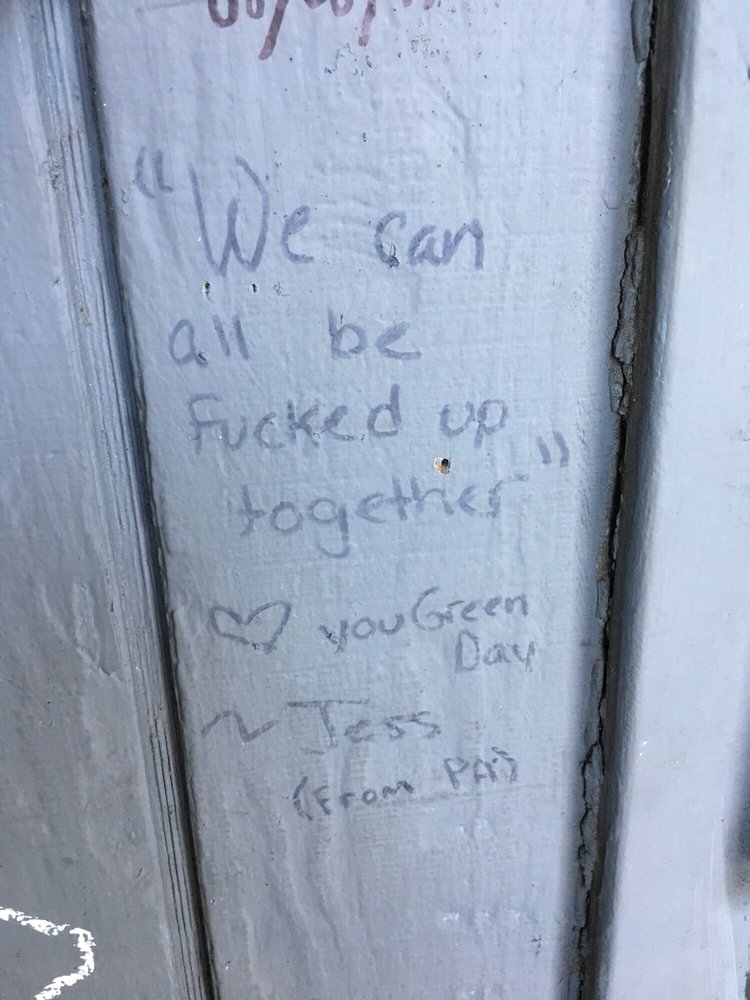 "We can
all be
fucked up
together"
♡ you Green
Day
~ Jess
(From PA)